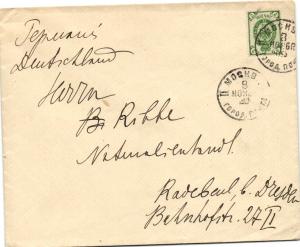 Германія
Deutschland
Herrn
B. Ribbe
Naturalienhandl.
Radebeul b. Dresden
Bahnhofstr. 27 II
МОСКВА
8
НОЯБ
МОСКВА
8
НОЯБ
ГОРОД. ПОЧТА